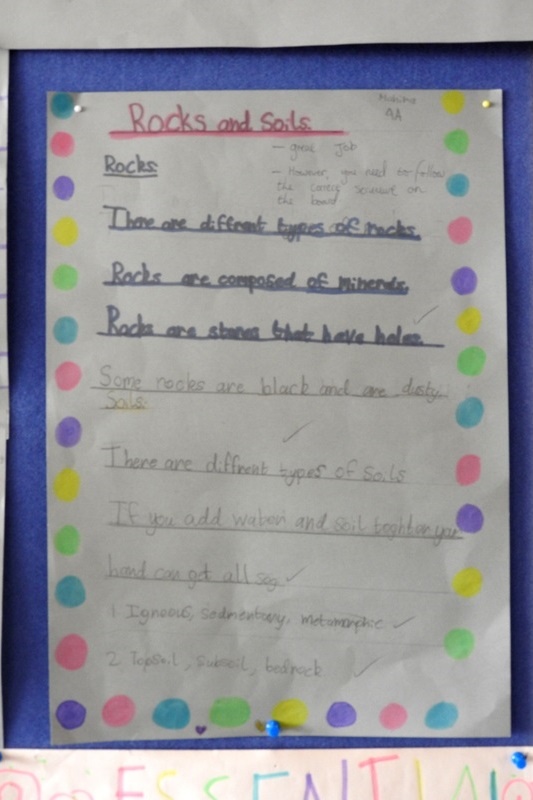 Rocks and Soils.
4A
- great Job
Rocks:
- However, you need to follow
the
the board
There are diffrent types of rocks.
Rocks are composed of minerals.
Rocks are stones that have holes.
Some rocks are black and are dusty.
Soils:
There are diffrent types of Soils
If you add and soil your
hand can get all
1 Igneous, Sedimentary, metamorphic
2 Topsoil, Subsoil, bedrock
ESSENTIAL